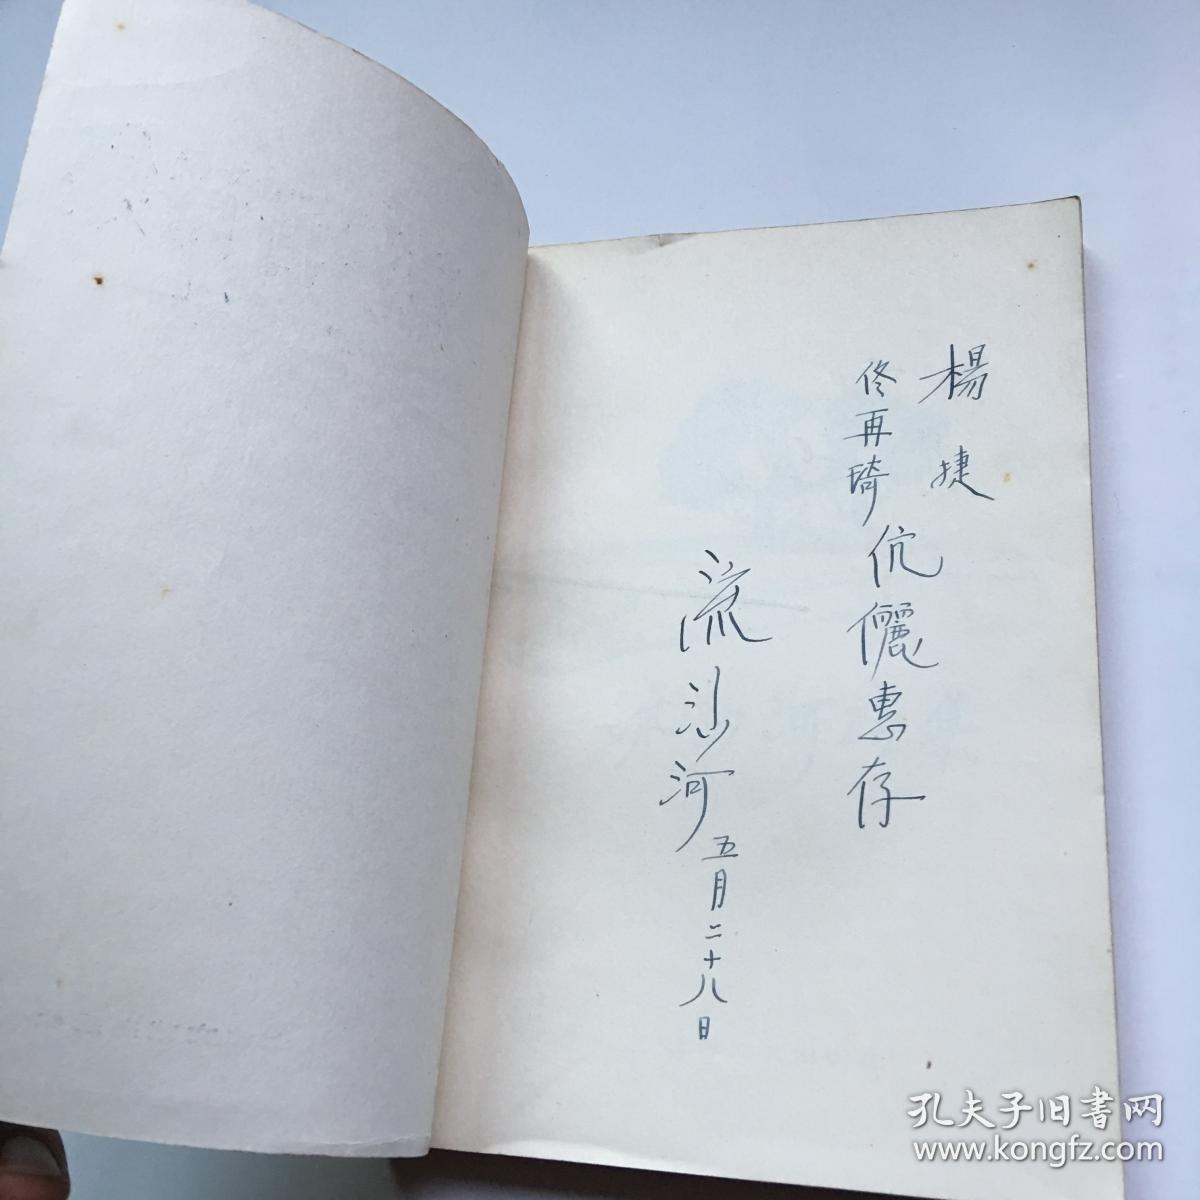 楊捷
佟再琦
伉儷惠存
流沙河
五月二十八日
孔夫子旧書网
www.kongfz.com